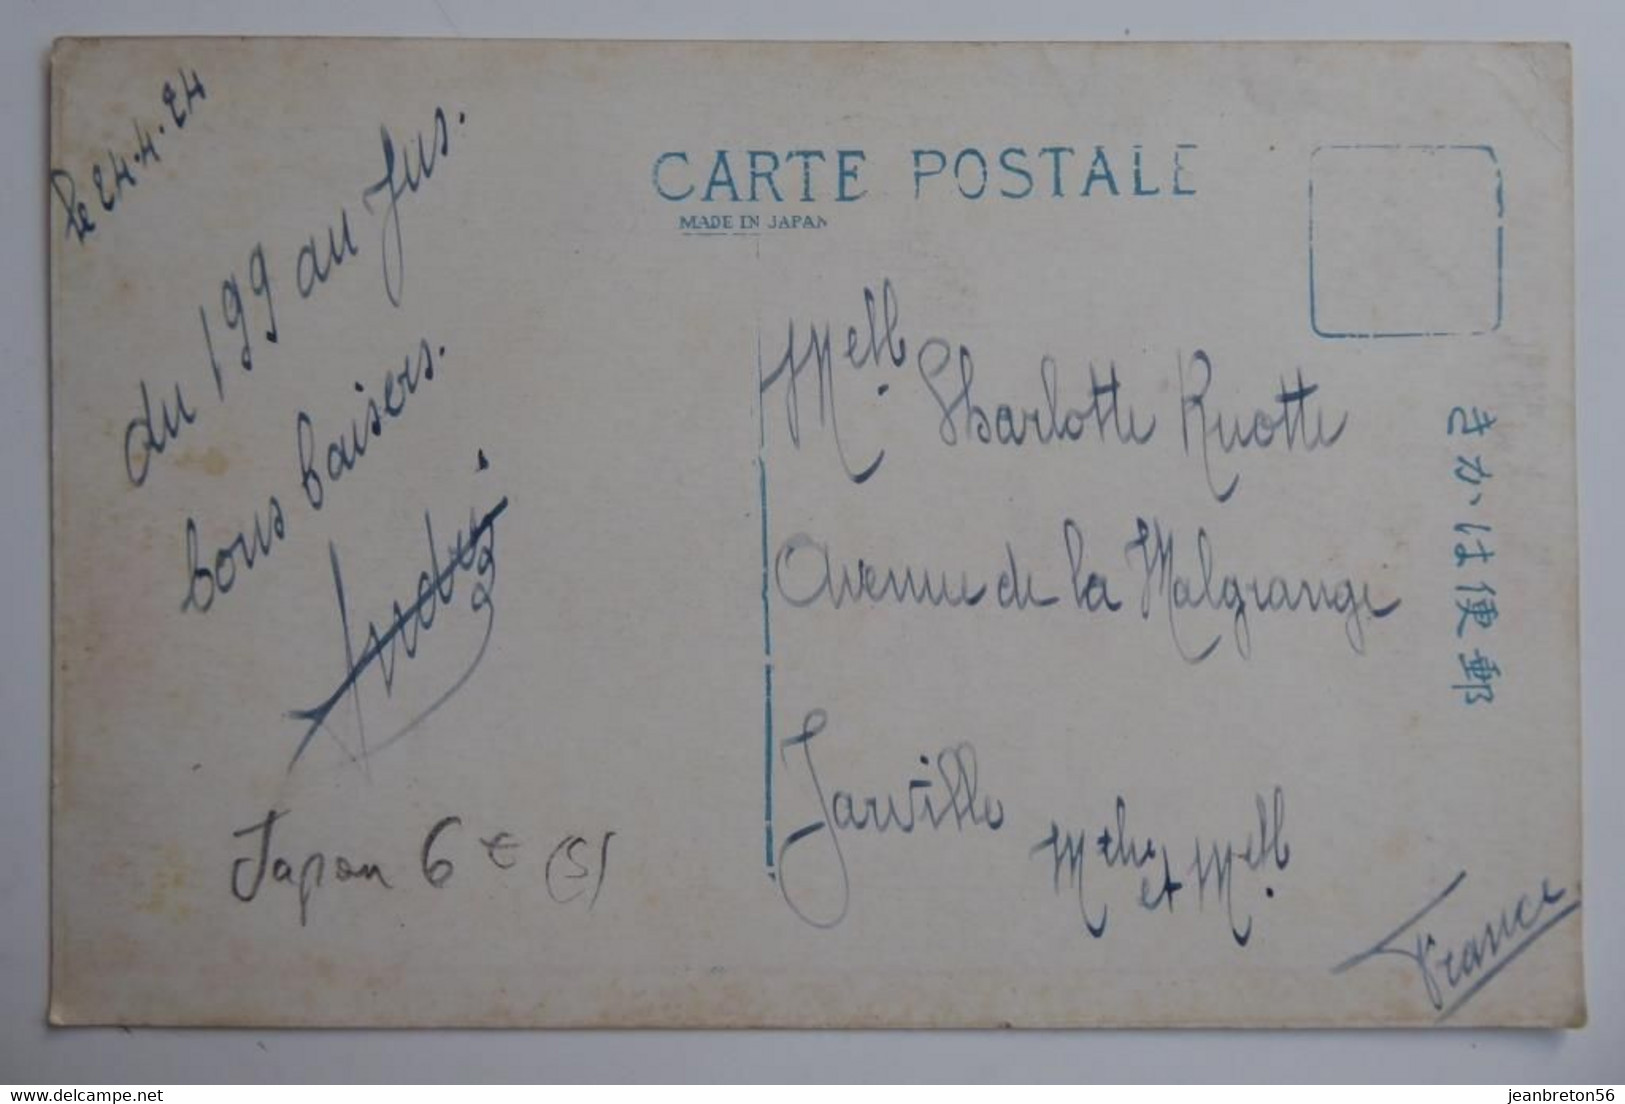 Le 24.4.24
du 199 au jus.
bons baisers.
CARTE POSTALE
MADE IN JAPAN
Melle Charlotte Ruotte
Avenue de la Malgrange
Jarville
Mthe et Melle
France
きかは便郵
Japon 6 € (5)
delcampe.net
jeanbreton56